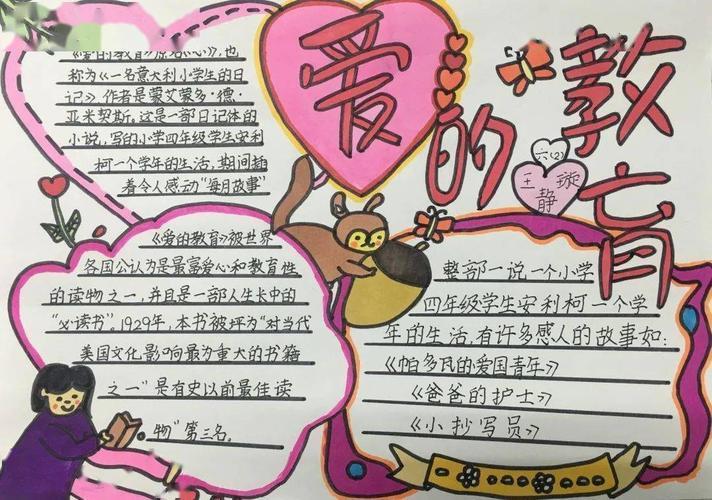 爱的教育
六(2)
王静璇
《爱的教育》原名《心》,也
称为《一名意大利小学生的日
记》,作者是蒙艾蒙多·德·
亚米契斯,这是一部日记体的
小说,写的小学四年级学生安利
柯一个学年的生活,期间插
着令人感动"每月故事"
《爱的教育》被世界
各国公认为是最富爱心和教育性
的读物之一,并且是一部人生长中的
"必读书",1929年,本书被坪为"对当代
美国文化影响最为重大的书籍
之一"是有史以前最佳读
物"第三名。
整部一说一个小学
四年级学生安利柯一个学
年的生活,有许多感人的故事如:
《帕多瓦的爱国青年》
《爸爸的护士》
《小抄写员》